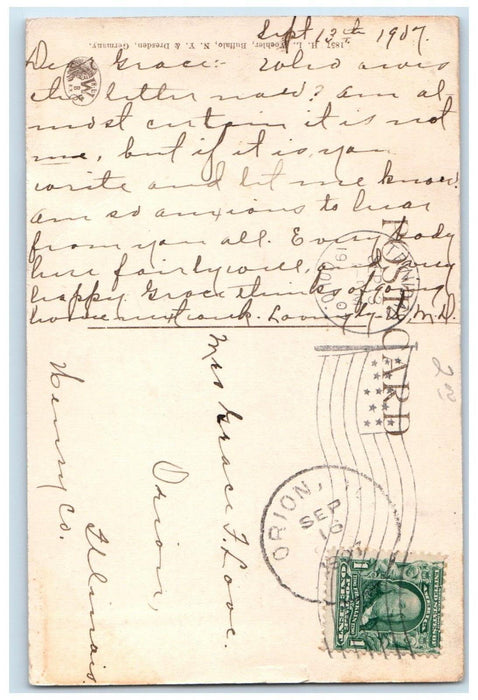 Sept 13th 1907.
1857 H. L. Woehler, Buffalo, N. Y. & Dresden, Germany.
Dear Grace:- Who owes
the letter now? Am al-
most certain it is not
me, but if it is, you
write and let me know.
Am so anxious to hear
from you all. Every body
here fairly well, and very
happy. Grace thinks of going
home next week. Lovingly M.D.
POST CARD
Mrs Grace F. Love.
Orion,
Henry Co.
Illinois.
ORION,
SEP
16